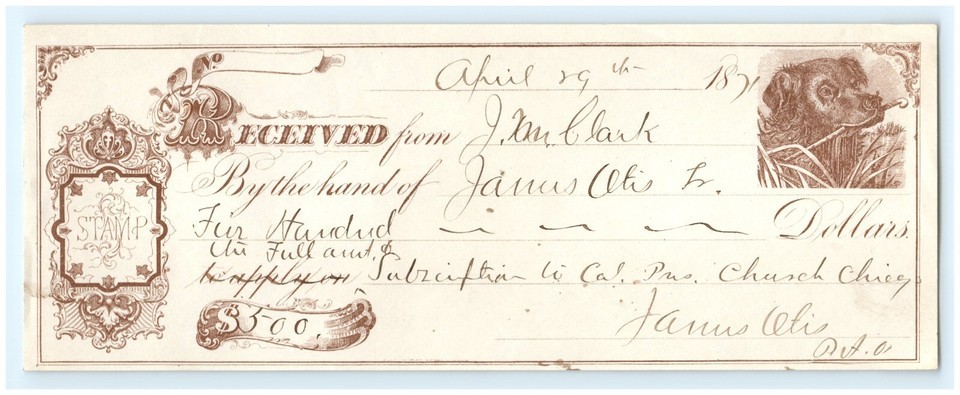 No
April 29th 1871
RECEIVED from J. Wm. Clark
By the hand of James Otis Jr.
Five Hundred Dollars.
the Full amt. of
to apply on Subscription to Cal. Pres. Church Chicago
STAMP
$500.
James Otis